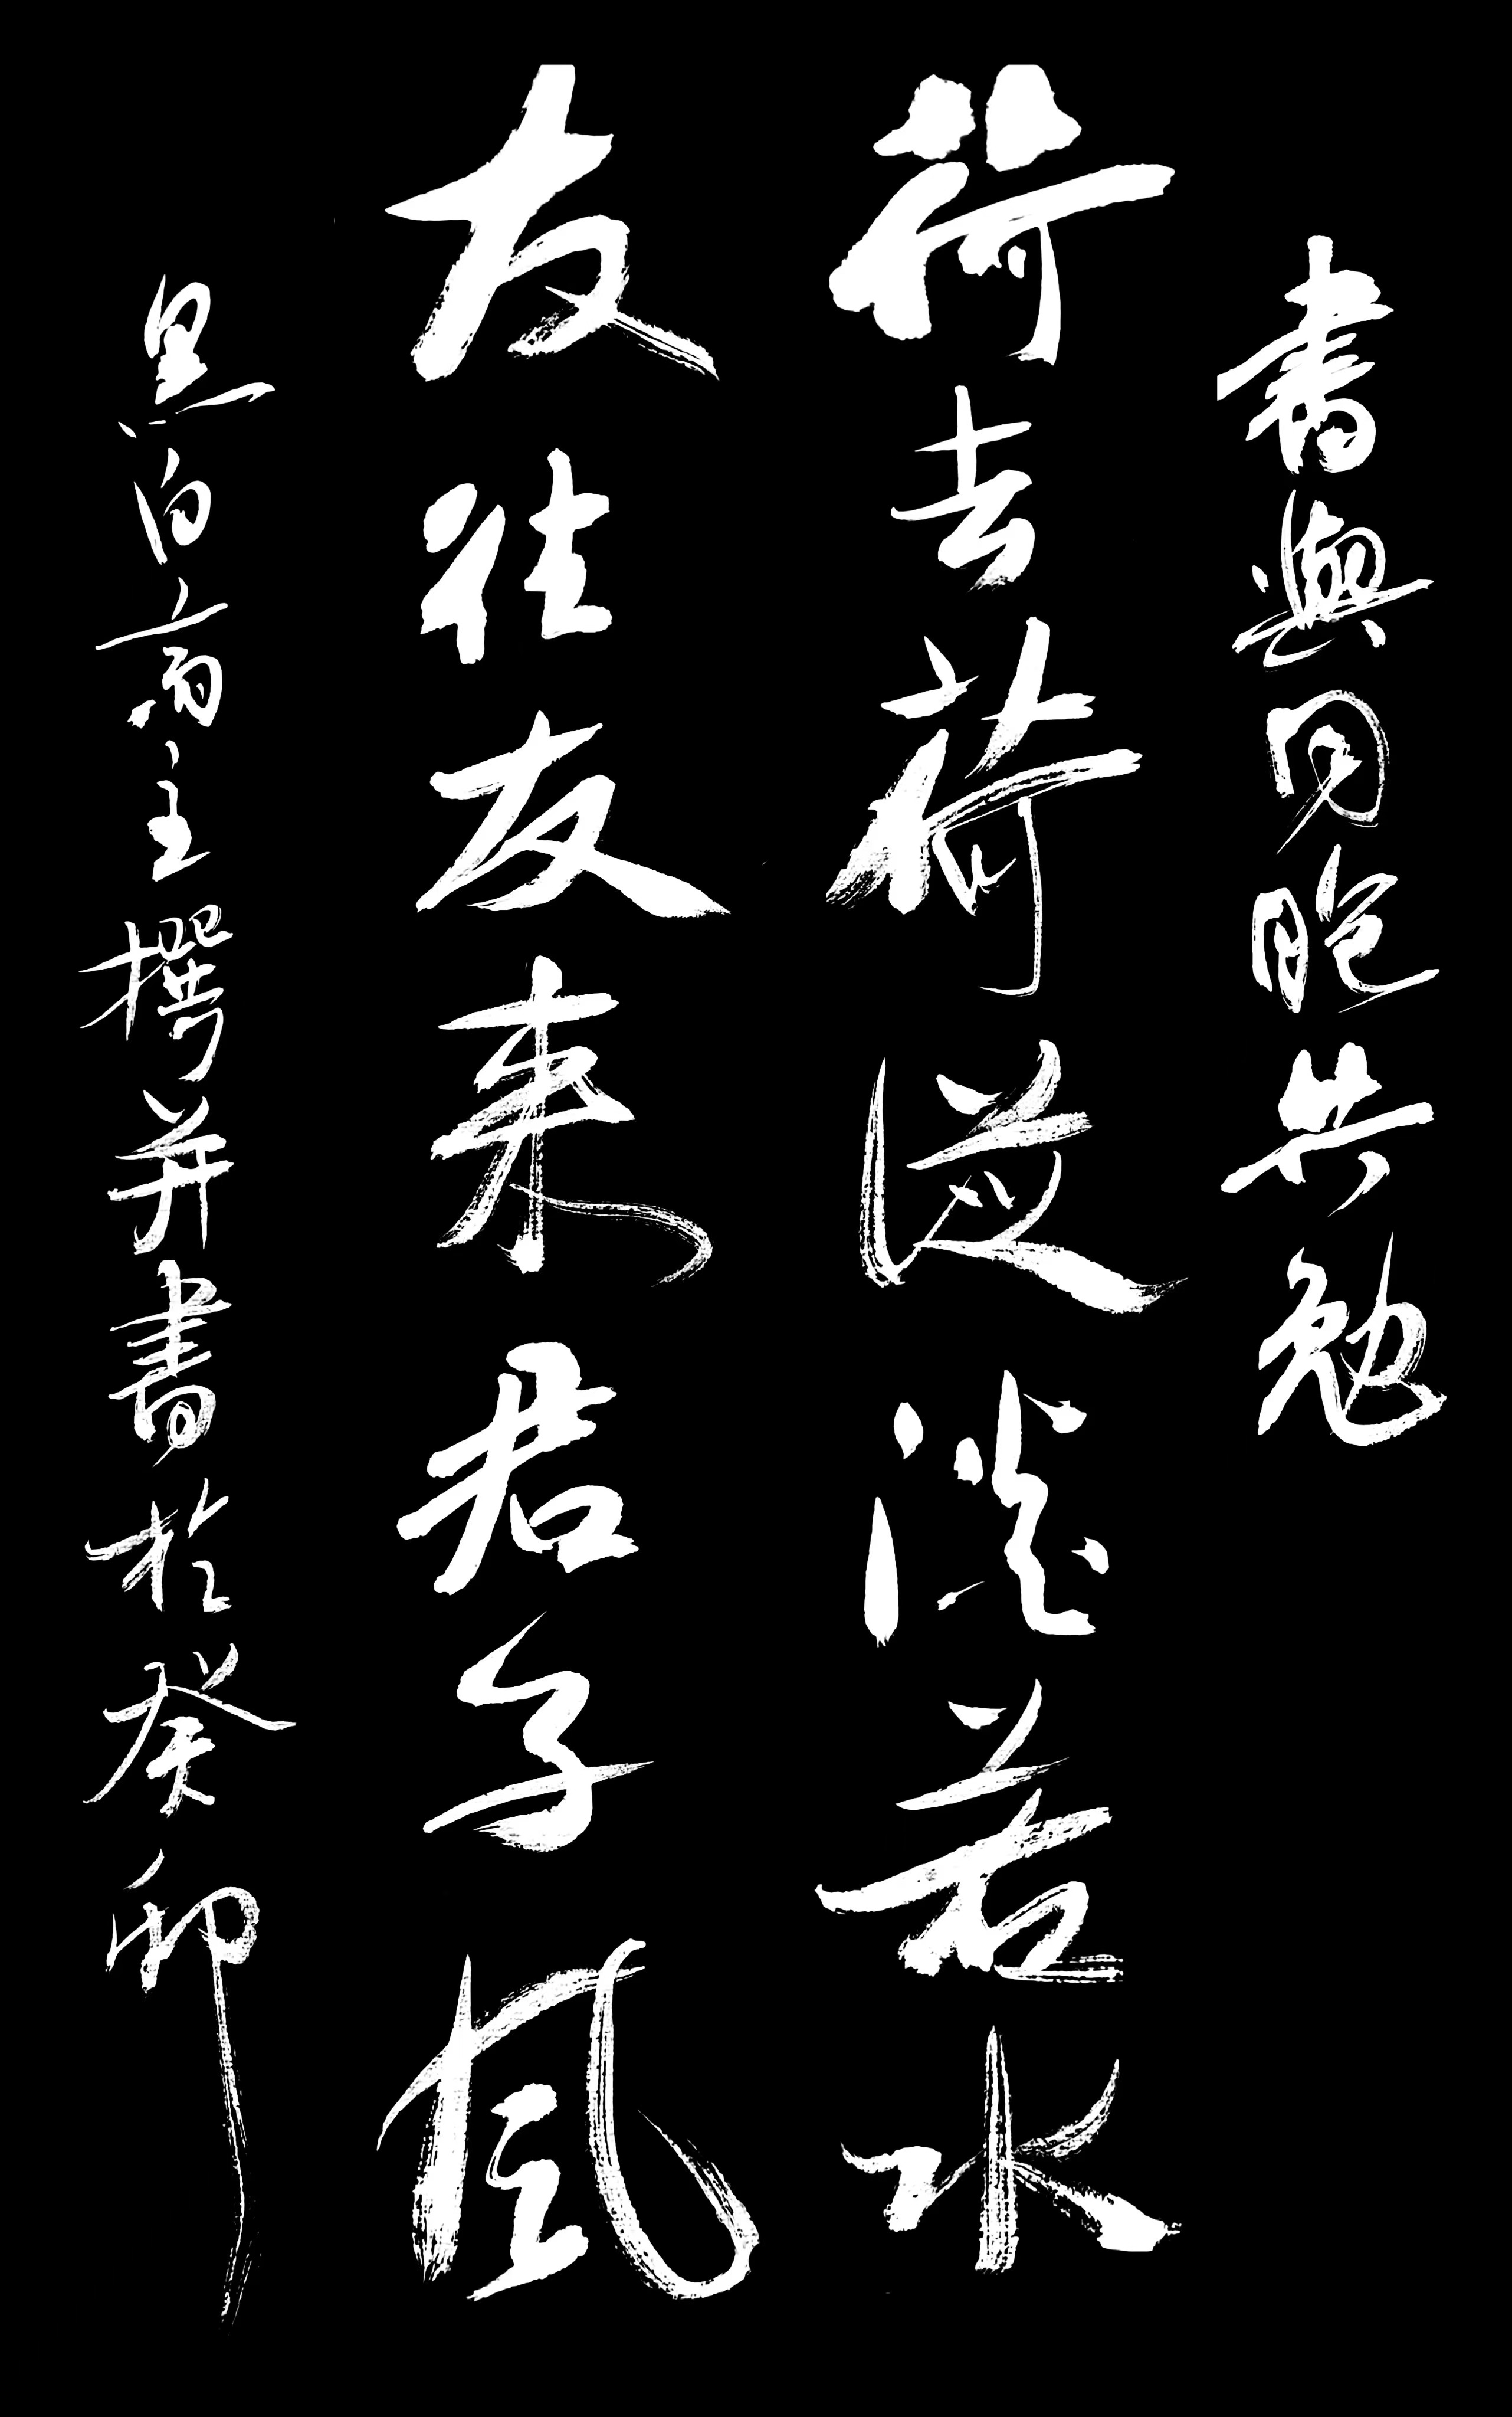 書與同胞共勉
荷去荷從淡若水
友往友來君子風
黑白齋主撰并書於癸卯